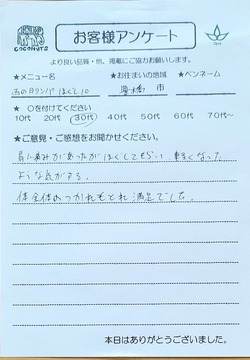 COCONUTS
お客様アンケート
より良い品質・他、掲載にご協力お願いします。
★メニュー名 ★お住まいの地域 ★ペンネーム
五の日リンパほぐし10 豊橋 市
★ ○を付けてください
10代 20代 30代 40代 50代 60代 70代～
★ご意見・ご感想をお聞かせください。
肩に痛みがあったがほぐしてもらい、軽くなった
ような気がする。
体全体のつかれもとれ満足でした。
本日はありがとうございました。